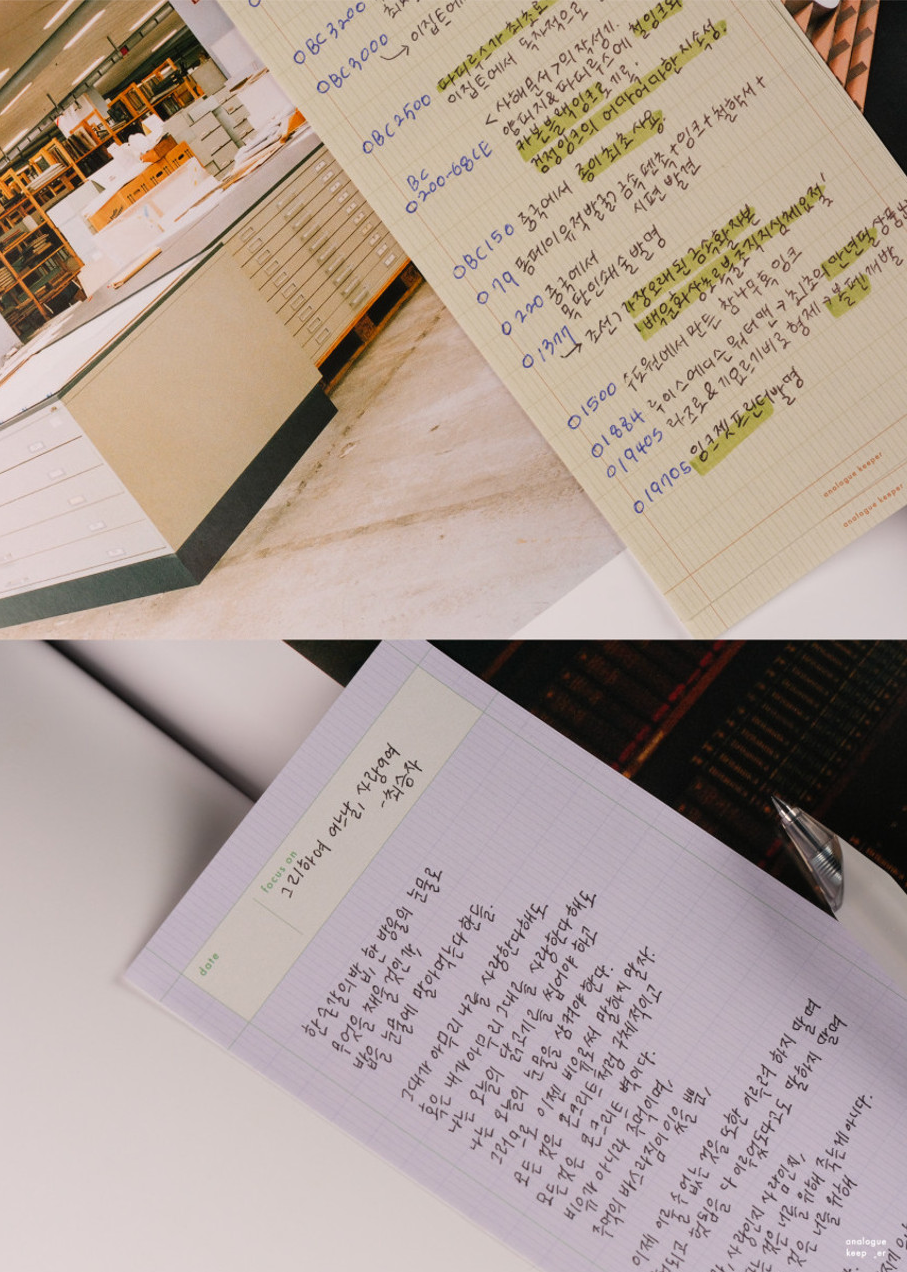 OBC3200
이집트에
OBC3000
이집트에서 독자적으로
OBC2500 파피루스가 최초로
<사해문서>의 작성기.
양피지&파피루스에
카본블랙잉크로 기록.
검정잉크의 어마어마한 지속성.
BC
O200-68CE
OBC150 중국에서 종이최초 사용
O79 폼페이 유적발굴) 금속펜촉+잉크+철학서+
시편 발견
O220 중국에서
목판인쇄술발명
O1377
→ 조선) 가장오래된 금속활자본
'백운화상초록불조직지심체요절'
O1500 수도원에서 만든 참나무톡 잉크
O1884 루이스에디슨워터맨→최초의 만년필상품
O1940s 라즈로&기오르기비로 형제→볼펜개발
O1970s 잉크젯프린터발명
analogue keeper
analogue keeper
date
focus on
그리하여 어느날, 사랑이여
-최승자
한 숟갈의 밥, 한 방울의 눈물로
무엇을 채울 것인가,
밥을 눈물에 말아먹는다 한들.
그대가 아무리 나를 사랑한다해도
혹은 내가 아무리 그대를 사랑한다해도
나는 오늘의 닭고기를 씹어야 하고
나는 오늘의 눈물을 삼켜야한다.
그러므로 이젠 비유로써 말하지 말자.
모든 것은 콘크리트처럼 구체적이고
모든 것은 콘크리트 벽이다.
비유가 아니라 주먹이며,
주먹의 바스라짐이 있을 뿐,
이제 이룰 수 없는 것을 또한 이루려 하지 말며
헛되고 헛됨을 다 이루었도다고도 말하지 말며
사랑인지 사람인지,
것은 너를 위해 죽는게 아니다.
것은 너를 위해
analogue
keep_er